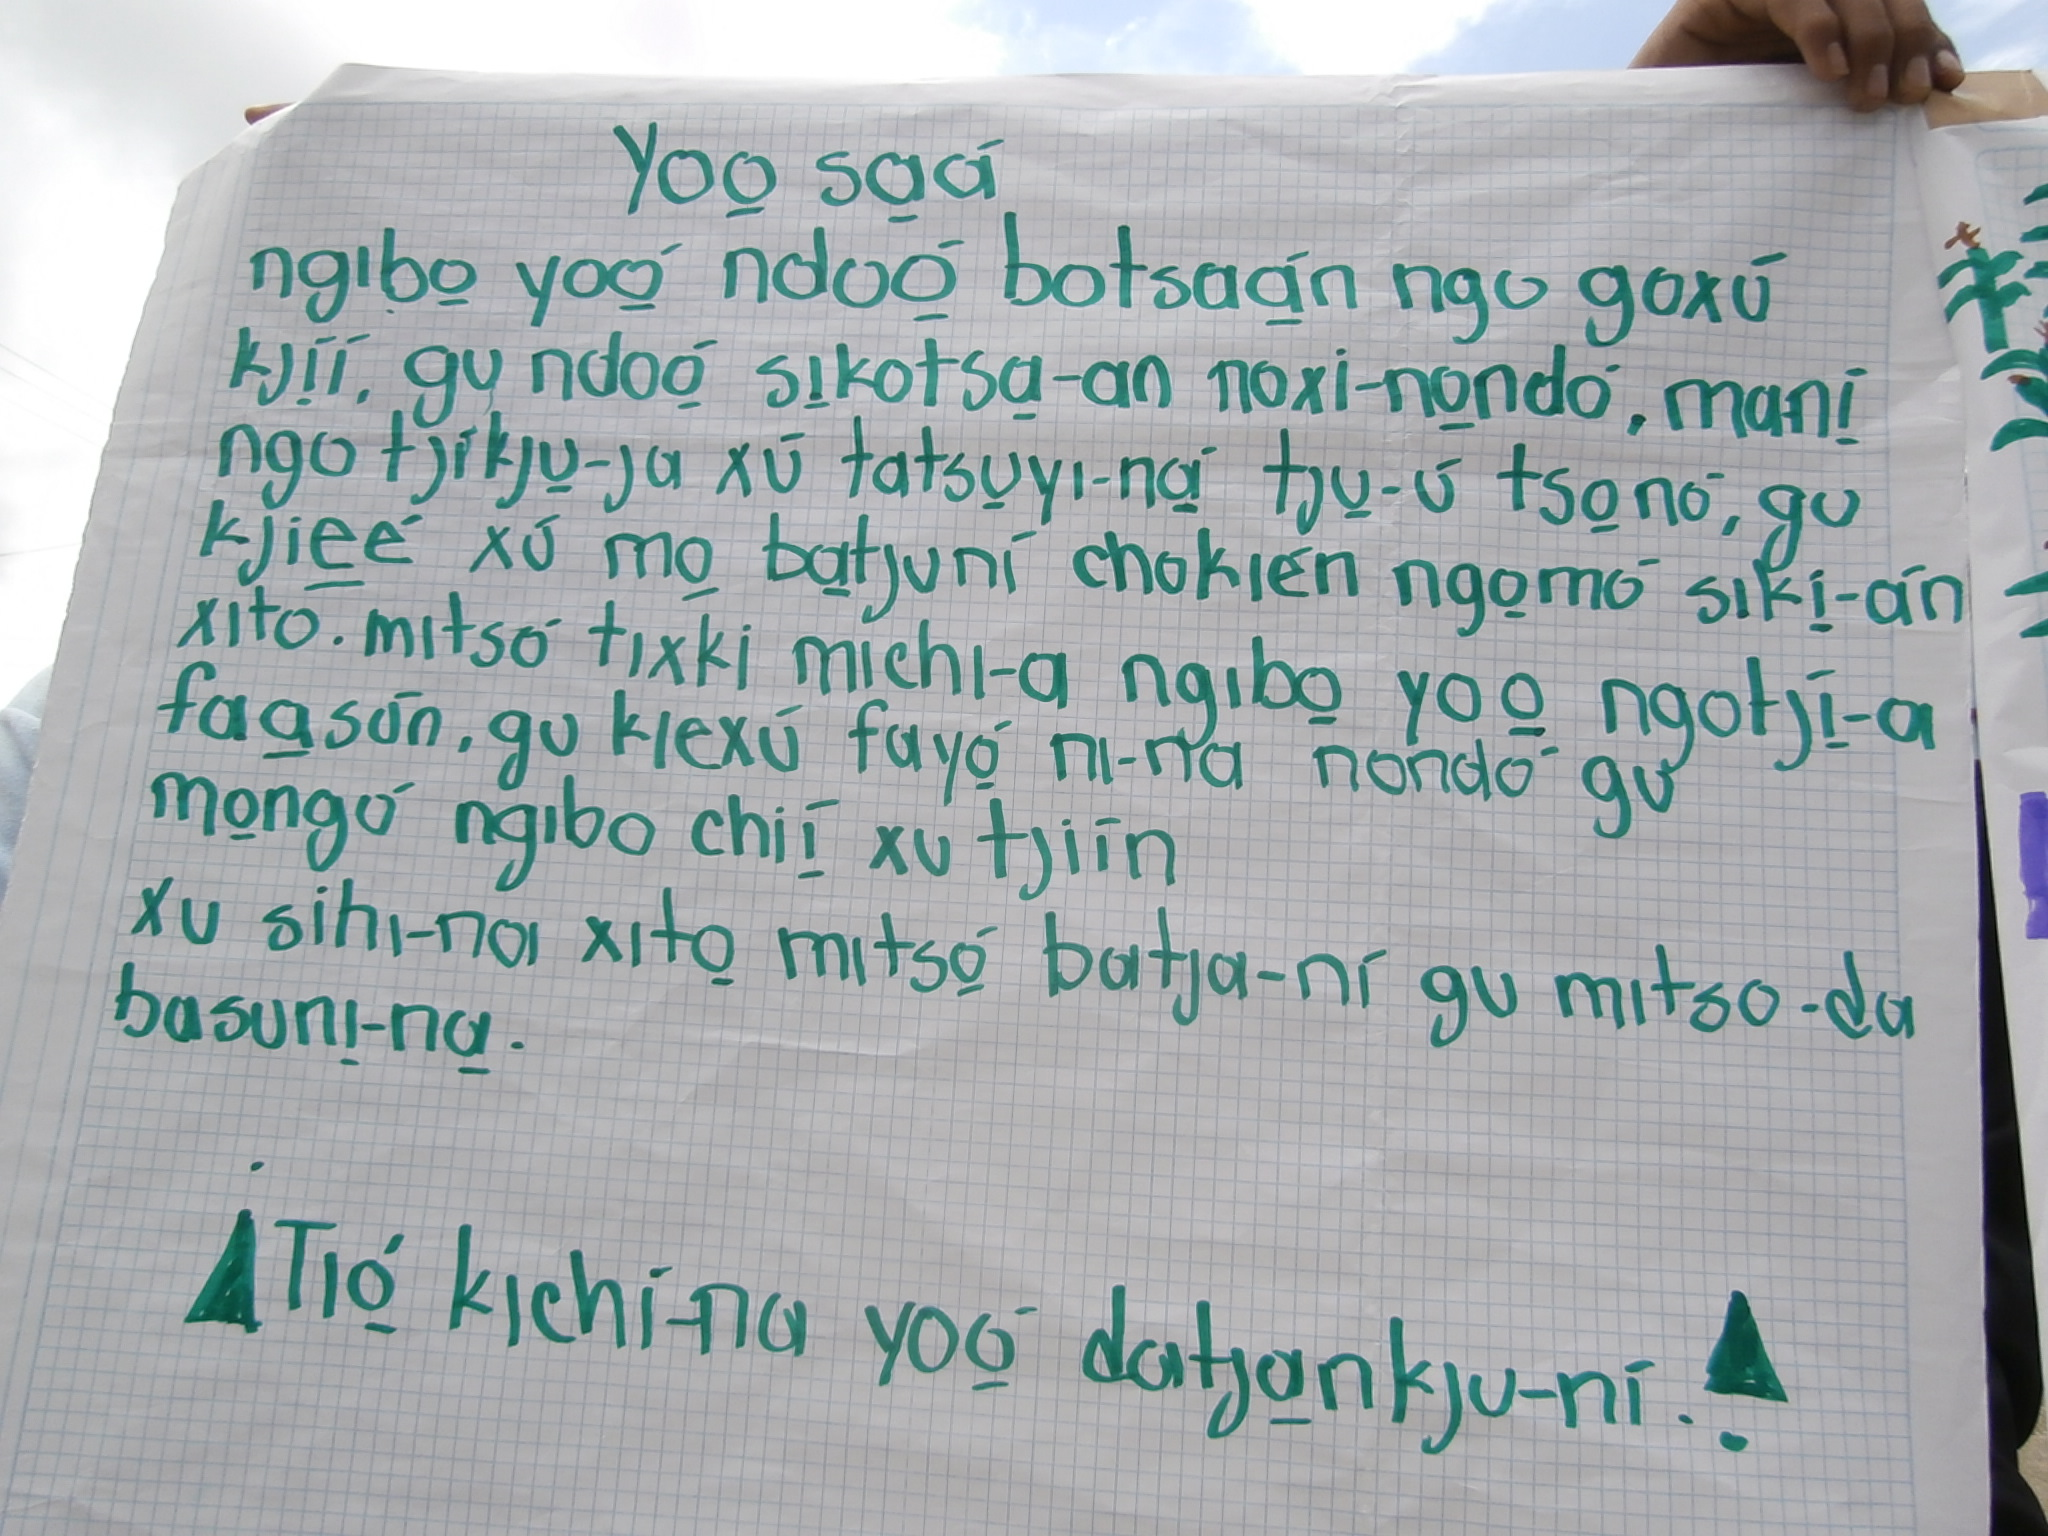 Yoo̱ sa̱á
ngibo̱ yoó̱ ndoó̱ botsaá̱n ngo goxú
kji̱í, gu̱ ndoó̱ si̱kotsa̱-an noxi-no̱ndó, mani̱
ngo tjíkju̱-ja xú tatsu̱yi-ná̱ tju̱-ú tso̱nó, gu
kjie̱é xú mo̱ ba̱tjuní chokién ngo̱mó siki̱-án
xito. mitsó tixki michi-a ngibo̱ yoo̱ ngotjí̱-a
faa̱són, gu kiexú fayó̱ ni-na nondó gu
mo̱ngó ngibo chií̱ xu tjiín
xu sihi-nai xito̱ mitsó̱ batja-ní gu mitso-da
basuni̱-na̱.
¡Tió̱ kichí-na yoó̱ datja̱nkju-ní.!